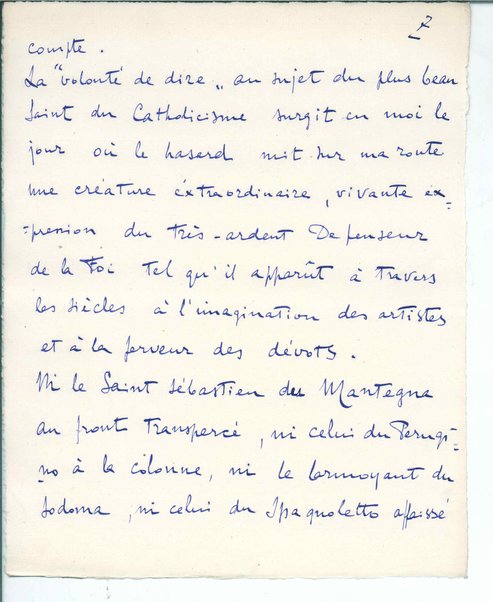 7
compte.
La "volonté de dire„ au sujet du plus beau
Saint du Catholicisme surgit en moi le
jour où le hasard mit sur ma route
une créature extraordinaire, vivante ex=
=pression du Très-ardent Défenseur
de la Foi tel qu'il apparût à travers
les siècles à l'imagination des artistes
et à la ferveur des dévots.
Ni le Saint Sébastien du Mantegna
au front transpercé, ni celui du Perugi=
=no à la colonne, ni le larmoyant du
Sodoma, ni celui du Spagnoletto affaissé